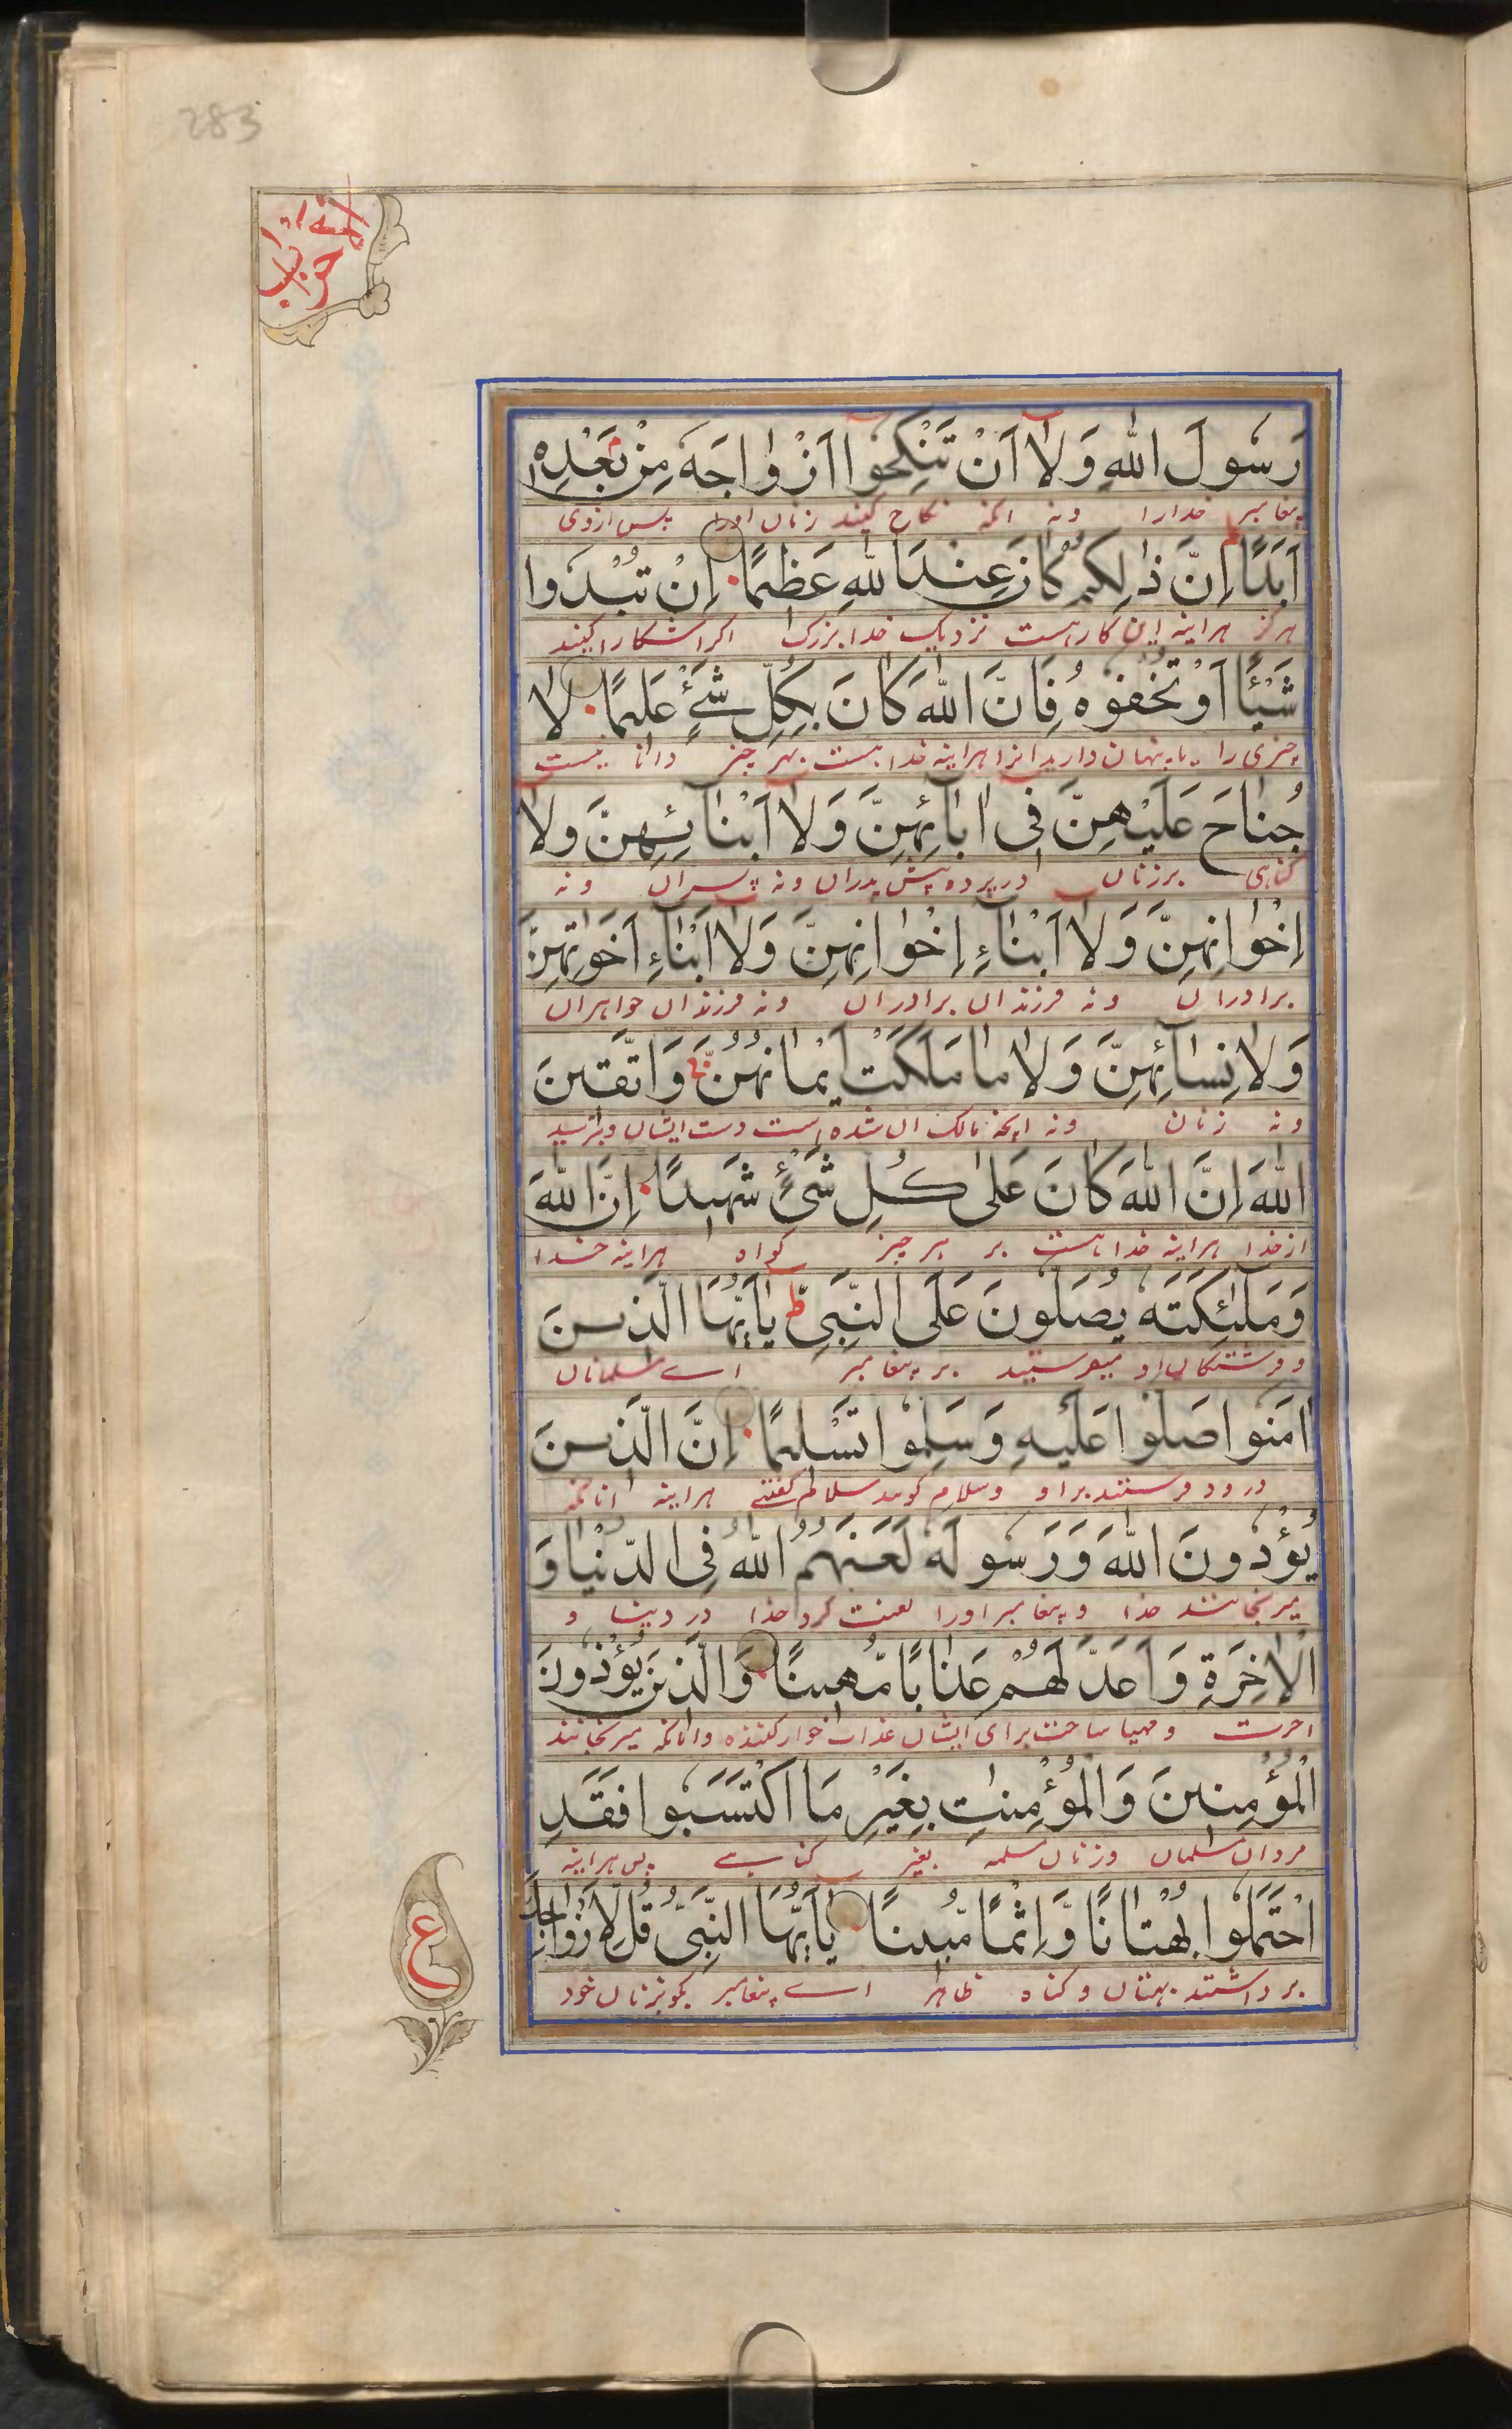 283
الاحزاب
رَسُولَ اللهِ وَلَآ اَنْ تَنْكِحُوٓا اَزْوٰاجَهٗ مِنْ بَعْدِهٖٓ
پیغامبر خدارا ونه انکه نکاح کنید زنان اورا پس ازوی
اَبَدًا اِنَّ ذٰلِكُمْ كَانَ عِنْدَ اللهِ عَظِيْمًا اِنْ تُبْدُوا
هرگز هراینه این کار هست نزدیک خدا بزرگ اگر اشکارا کنید
شَيْئًا اَوْ تُخْفُوهُ فَاِنَّ اللهَ كَانَ بِكُلِّ شَيْءٍ عَلِيمًا لَا
چیزی را یا پنهان دارید انرا هراینه خدا هست بهر چیز دانا نیست
جُنَاحَ عَلَيْهِنَّ فِى اٰبَآئِهِنَّ وَلَآ اَبْنَآئِهِنَّ وَلَآ
گناهی بر زنان در پرده پیش پدران ونه پسران ونه
اِخْوٰانِهِنَّ وَلَآ اَبْنَآءِ اِخْوٰانِهِنَّ وَلَآ اَبْنَآءِ اَخَوٰتِهِنَّ
برادران ونه فرزندان برادران ونه فرزندان خواهران
وَلَا نِسَآئِهِنَّ وَلَا مَا مَلَكَتْ اَيْمَانُهُنَّ ج وَاتَّقِينَ
ونه زنان ونه انچه مالک ان شده است دست ایشان وبترسید
اللهَ اِنَّ اللهَ كَانَ عَلٰى كُلِّ شَيْءٍ شَهِيدًا اِنَّ اللهَ
از خدا هراینه خدا هست بر هر چیز گواه هراینه خدا
وَمَلٰٓئِكَتَهٗ يُصَلُّونَ عَلَى النَّبِىِّ ط يٰٓاَيُّهَا الَّذِينَ
وفرشتگان او میفرستید بر پیغامبر اے مسلمانان
اٰمَنُوا صَلُّوا عَلَيْهِ وَسَلِّمُوا تَسْلِيمًا اِنَّ الَّذِينَ
درود فرستید براو وسلام گویید سلام گفتنے هراینه انانکه
يُؤْذُونَ اللهَ وَرَسُولَهٗ لَعَنَهُمُ اللهُ فِى الدُّنْيَا وَ
میرنجانند خدا و پیغامبر اورا لعنت کرد خدا در دنیا و
الْاٰخِرَةِ وَاَعَدَّ لَهُمْ عَذَابًا مُّهِينًا وَالَّذِينَ يُؤْذُونَ
اخرت و مهیا ساخت برای ایشان عذاب خوار کننده وانانکه میرنجانند
الْمُؤْمِنِينَ وَالْمُؤْمِنٰتِ بِغَيْرِ مَا اكْتَسَبُوا فَقَدِ
مردان مسلمان وزنان مسلمه بغیر گناہے پس هراینه
احْتَمَلُوا بُهْتَانًا وَّاِثْمًا مُّبِينًا يٰٓاَيُّهَا النَّبِىُّ قُل لِّاَزْوٰاجِكَ
برداشتند بهتان وگناه ظاهر اے پیغامبر بگو بزنان خود
ع